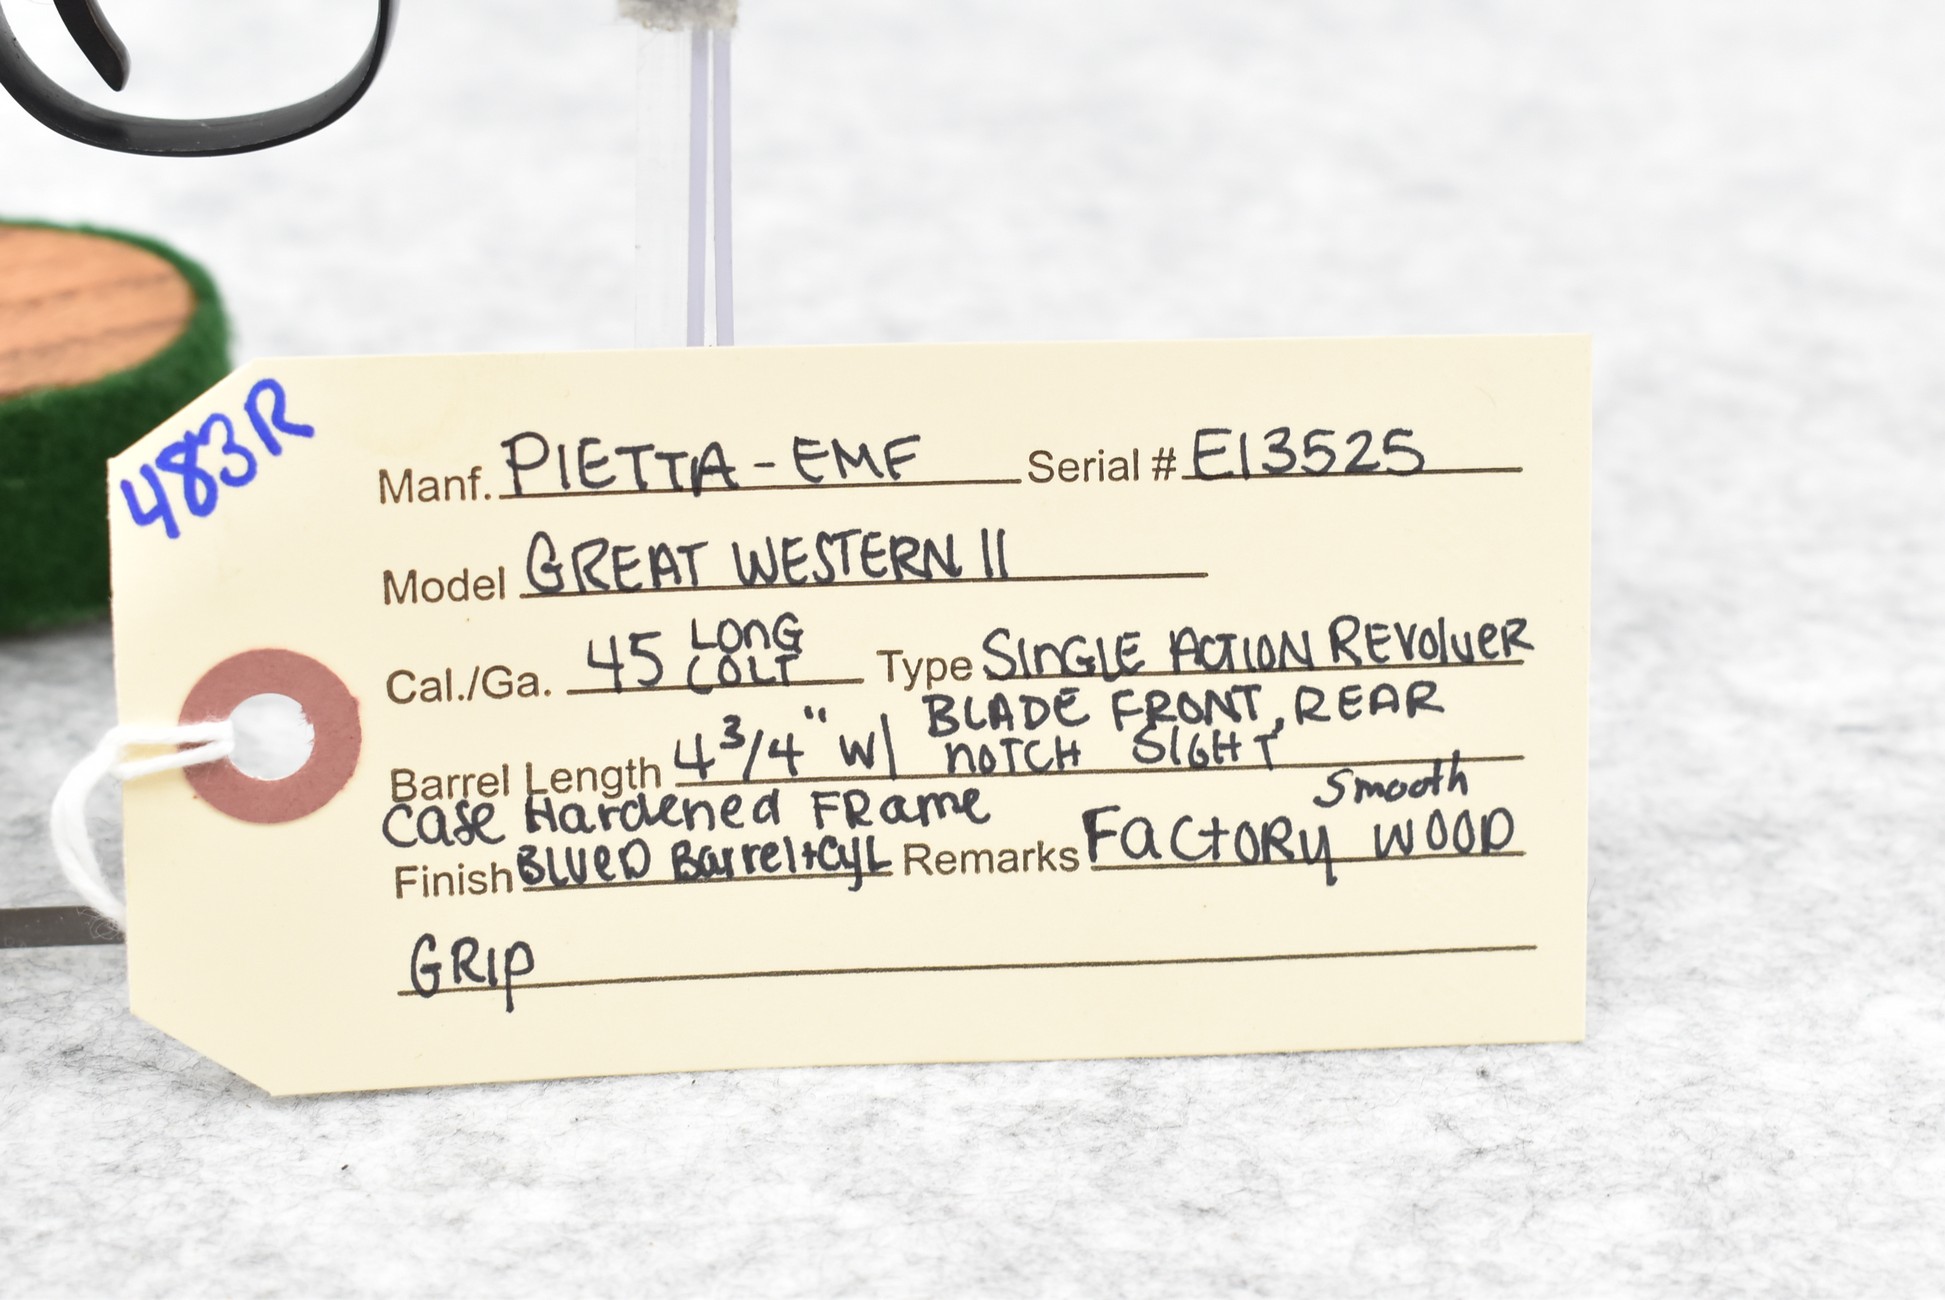 483R
Manf. PIETTA - EMF Serial # E13525
Model GREAT WESTERN II
Cal./Ga. 45 LONG COLT Type SINGLE ACTION REVOLVER
Barrel Length 4 3/4" W/ BLADE FRONT, REAR NOTCH SIGHT
Case Hardened FRame
Finish BLUED Barrel+CYL Remarks Factory Smooth WOOD
GRIP